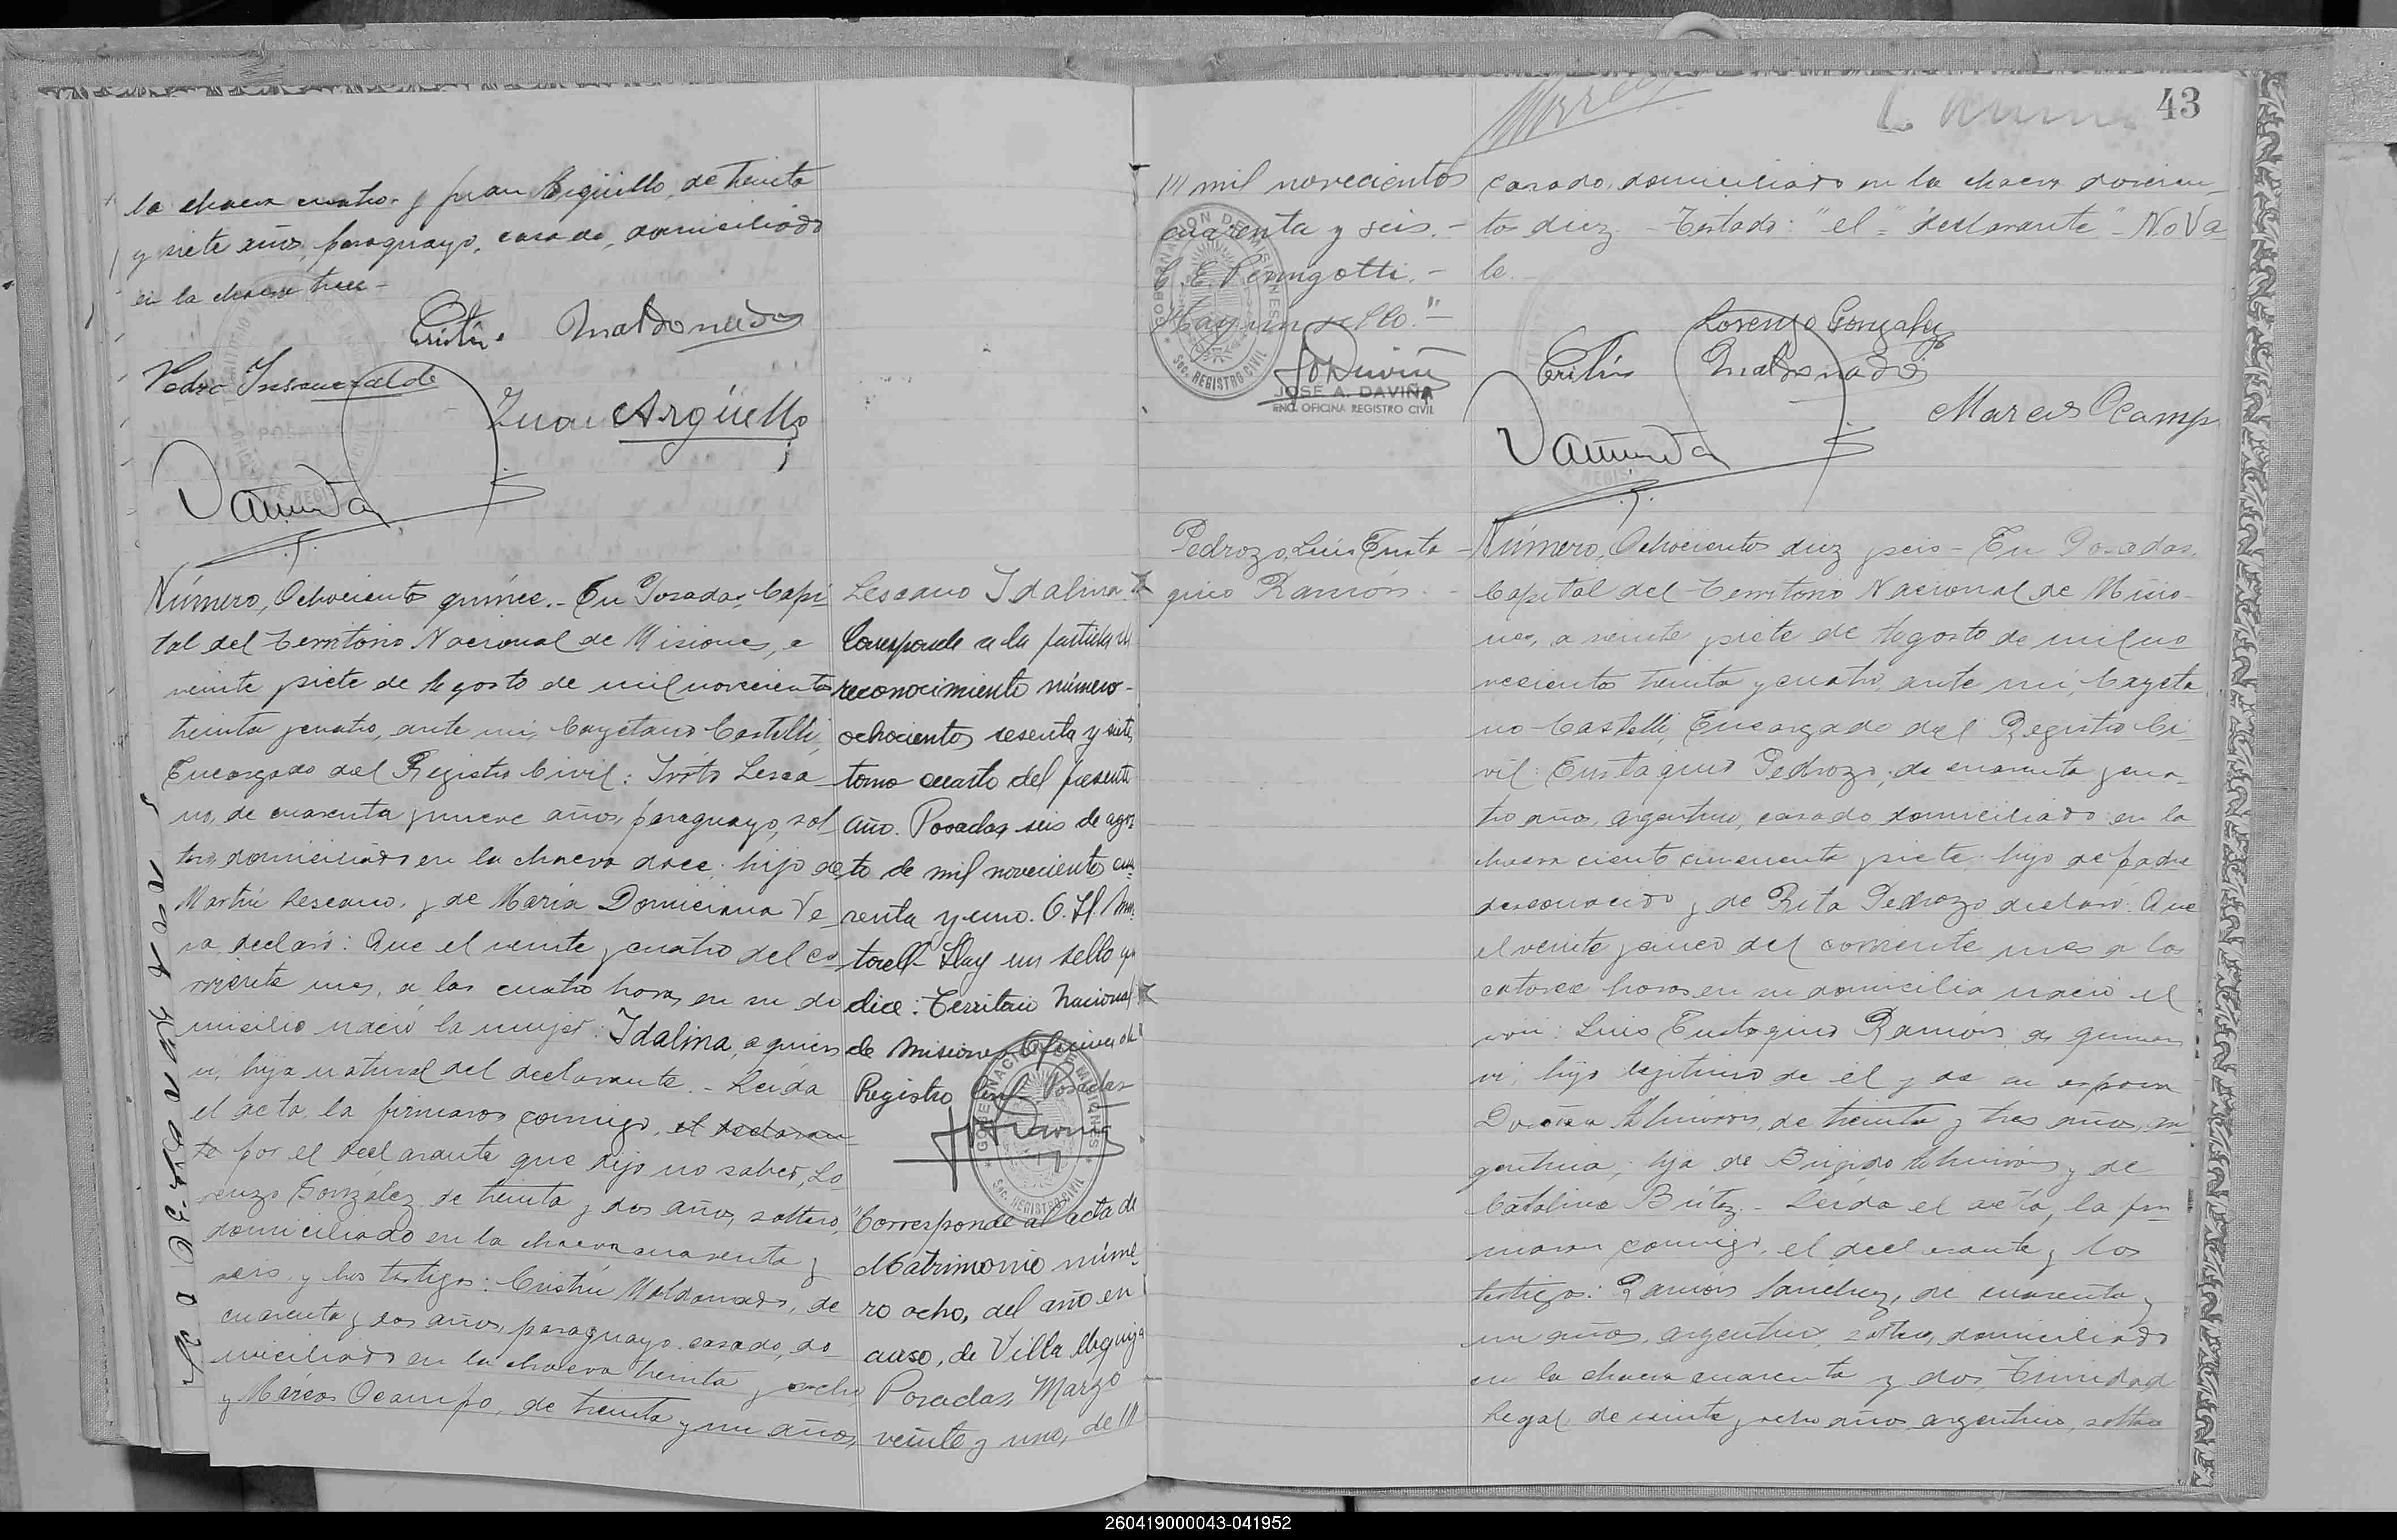 la chacra cuatro y Juan Argüello, de treinta
y siete años, paraguayo, casado, domiciliado
en la chacra trece-
Cristín Maldonado
Pedro Insaurralde
Juan Argüello
Número, Ochocientos quince.- En Posadas, Capi
tal del Territorio Nacional de Misiones, a
veinte y siete de Agosto de mil novecientos
treinta y cuatro, ante mi, Cayetano Castelli,
Encargado del Registro Civil: Lesca
no, de cuarenta y nueve años, paraguayo, sol
tero, domiciliado en la chacra doce, hijo de
Martín Lescano, y de María Domiciana Ve
ra, declaró: Que el veinte y cuatro del co
rriente mes, a las cuatro horas, en su do
micilio nació la mujer: Idalina, a quien
vi, hija natural del declarante.- Leída
el acta, la firmaron conmigo, el declaran
te por el declarante que dijo no saber, Lo
renzo González, de treinta y dos años, soltero,
domiciliado en la chacra cuarenta y
seis y los testigos: Cristín Maldonado, de
cuarenta y dos años, paraguayo, casado, do
miciliado en la chacra treinta y ocho,
y Marcos Ocampo, de treinta y un años,
Lescano Idalina.
Corresponde a la partida de
reconocimiento número-
ochocientos sesenta y siete,
tomo cuarto del presente
año. Posadas seis de agos
to de mil novecientos cua
renta y uno. O. H. 
Hay un sello que
dice: Territorio Nacional
de Misiones Oficina del
Registro Civil - Posadas
GOBERNACION DE MISIONES
Sec. REGISTRO CIVIL
"Corresponde al acta de
Matrimonio núme-
ro ocho, del año en
curso, de Villa Urquiza
Posadas, Marzo
veinte y uno, de ///
43
/// mil novecientos
cuarenta y seis.-
C. E. Perugotti.-
Hay un sello."-
GOBERNACION DE MISIONES
Sec. REGISTRO CIVIL
JOSE A. DAVIÑA
ENC. OFICINA REGISTRO CIVIL
casado, domiciliado en la chacra doscien-
tos diez.- Testado: "el = declarante"- No Va
le.-
Lorenzo González
Cristín Maldonado
Marcos Ocampo
Pedrozo, Luis Eusta
quio Ramón.-
Número, Ochocientos diez y seis - En Posadas,
Capital del Territorio Nacional de Misio-
nes, a veinte y siete de Agosto de mil no
vecientos treinta y cuatro, ante mí, Cayeta
no Castelli, Encargado del Registro Ci
vil: Eustaquio Pedrozo, de cuarenta y cua-
tro años, argentino, casado, domiciliado en la
chacra ciento cincuenta y siete, hijo de padre
desconocido y de Rita Pedrozo, declaró: Que
el veinte y cinco del corriente mes a las
catorce horas en su domicilio nació el
varón: Luis Eustaquio Ramón, a quien
vi, hijo legítimo de él y de su esposa
Almirón, de treinta y tres años, ar
gentina, hija de Brígido Almirón y de
Catalina - Leída el acta, la fir
maron conmigo, el declarante y los
testigos: Ramón Sanchez, de cuarenta y
un años, argentino, soltero, domiciliado
en la chacra cuarenta y dos, Trinidad
Legal, de veinte y ocho años, argentino, soltero
260419000043-041952